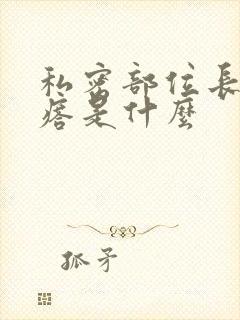 私密部位長
痞是什麼
孤矛